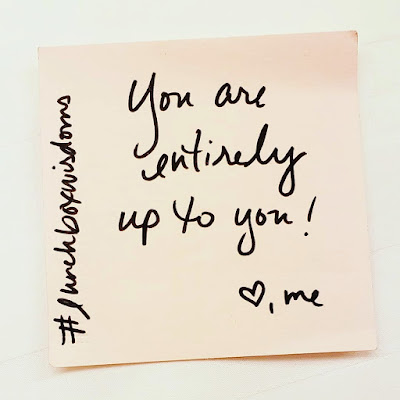 You are
entirely
up to you!
♡, me
#lunchboxwisdoms